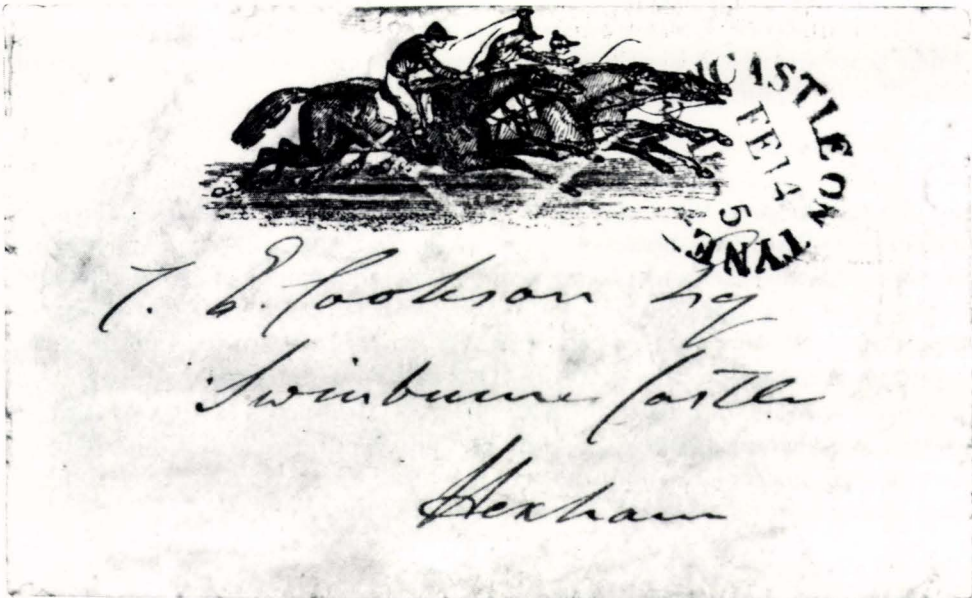 NCASTLE ON TYNE
FE 14
5
T. E. Cookson Esq
Swinburne Castle
Hexham